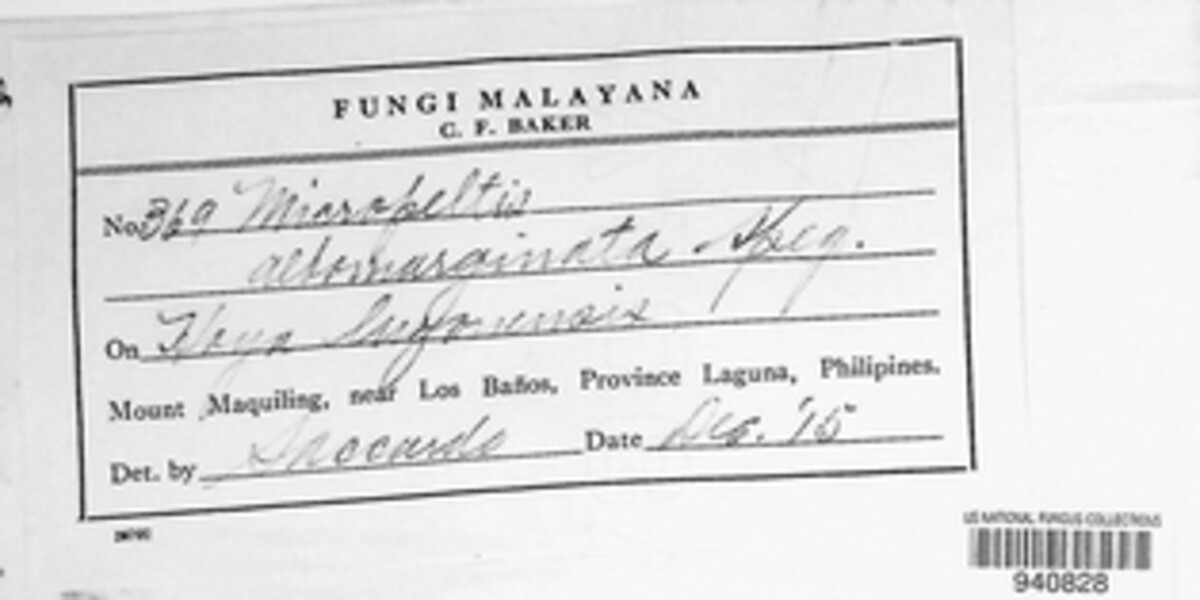 FUNGI MALAYANA
C. F. BAKER
No. 369 Micropeltis
albomarginata Speg.
On Hoya luzonensis
Mount Maquiling, near Los Baños, Province Laguna, Philipines.
Det. by Saccardo Date Dec. '15
US NATIONAL FUNGUS COLLECTIONS
940828